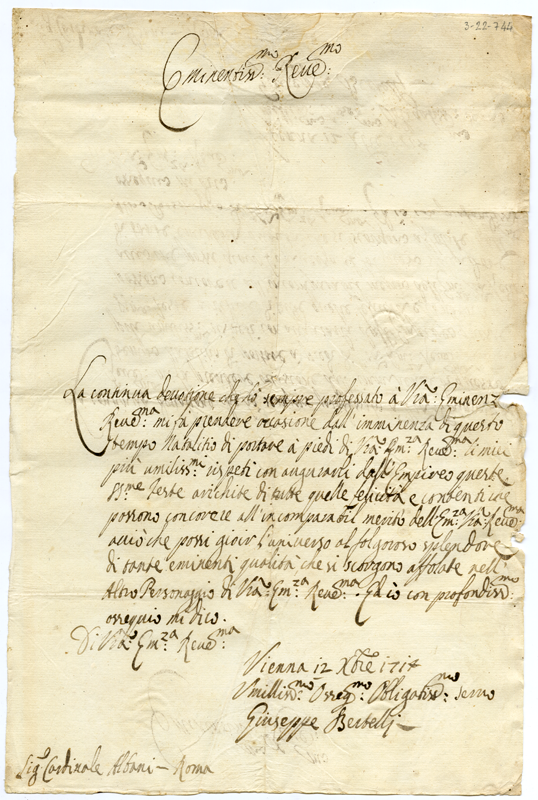 3-22-744
Eminentiss:mo Reve:mo
La continua devotione che hò sempre professato à Vra: Eminenza
Reve:ma mi fà prendere occasione dall'imminenza di questo
tempo Natalitio di portare à piedi di Vra: Em:za Reve:ma li miei
più umiliss:mi rispeti con augurarvi dall'Empireo queste
SS:me feste arichite di tutte quelle felicità e contenti che
possono concorere all'incomparabil merito dell'Em:za Vra: Reve:ma
acciò che possi gioir l'universo al folgoroso splendore
di tante eminenti qualità che si scorgono affolate nell'
Altro Personaggio di Vra: Em:za Reve:ma. Ed io con profondiss:mo
ossequio mi dico.
Di Vra: Em:za Reve:ma
Vienna 12 Xbre 1714
Umilliss:mo Osseq:mo Obligatiss:mo servo
Giuseppe Bertelli
Sig:e Cardinale Albani - Roma